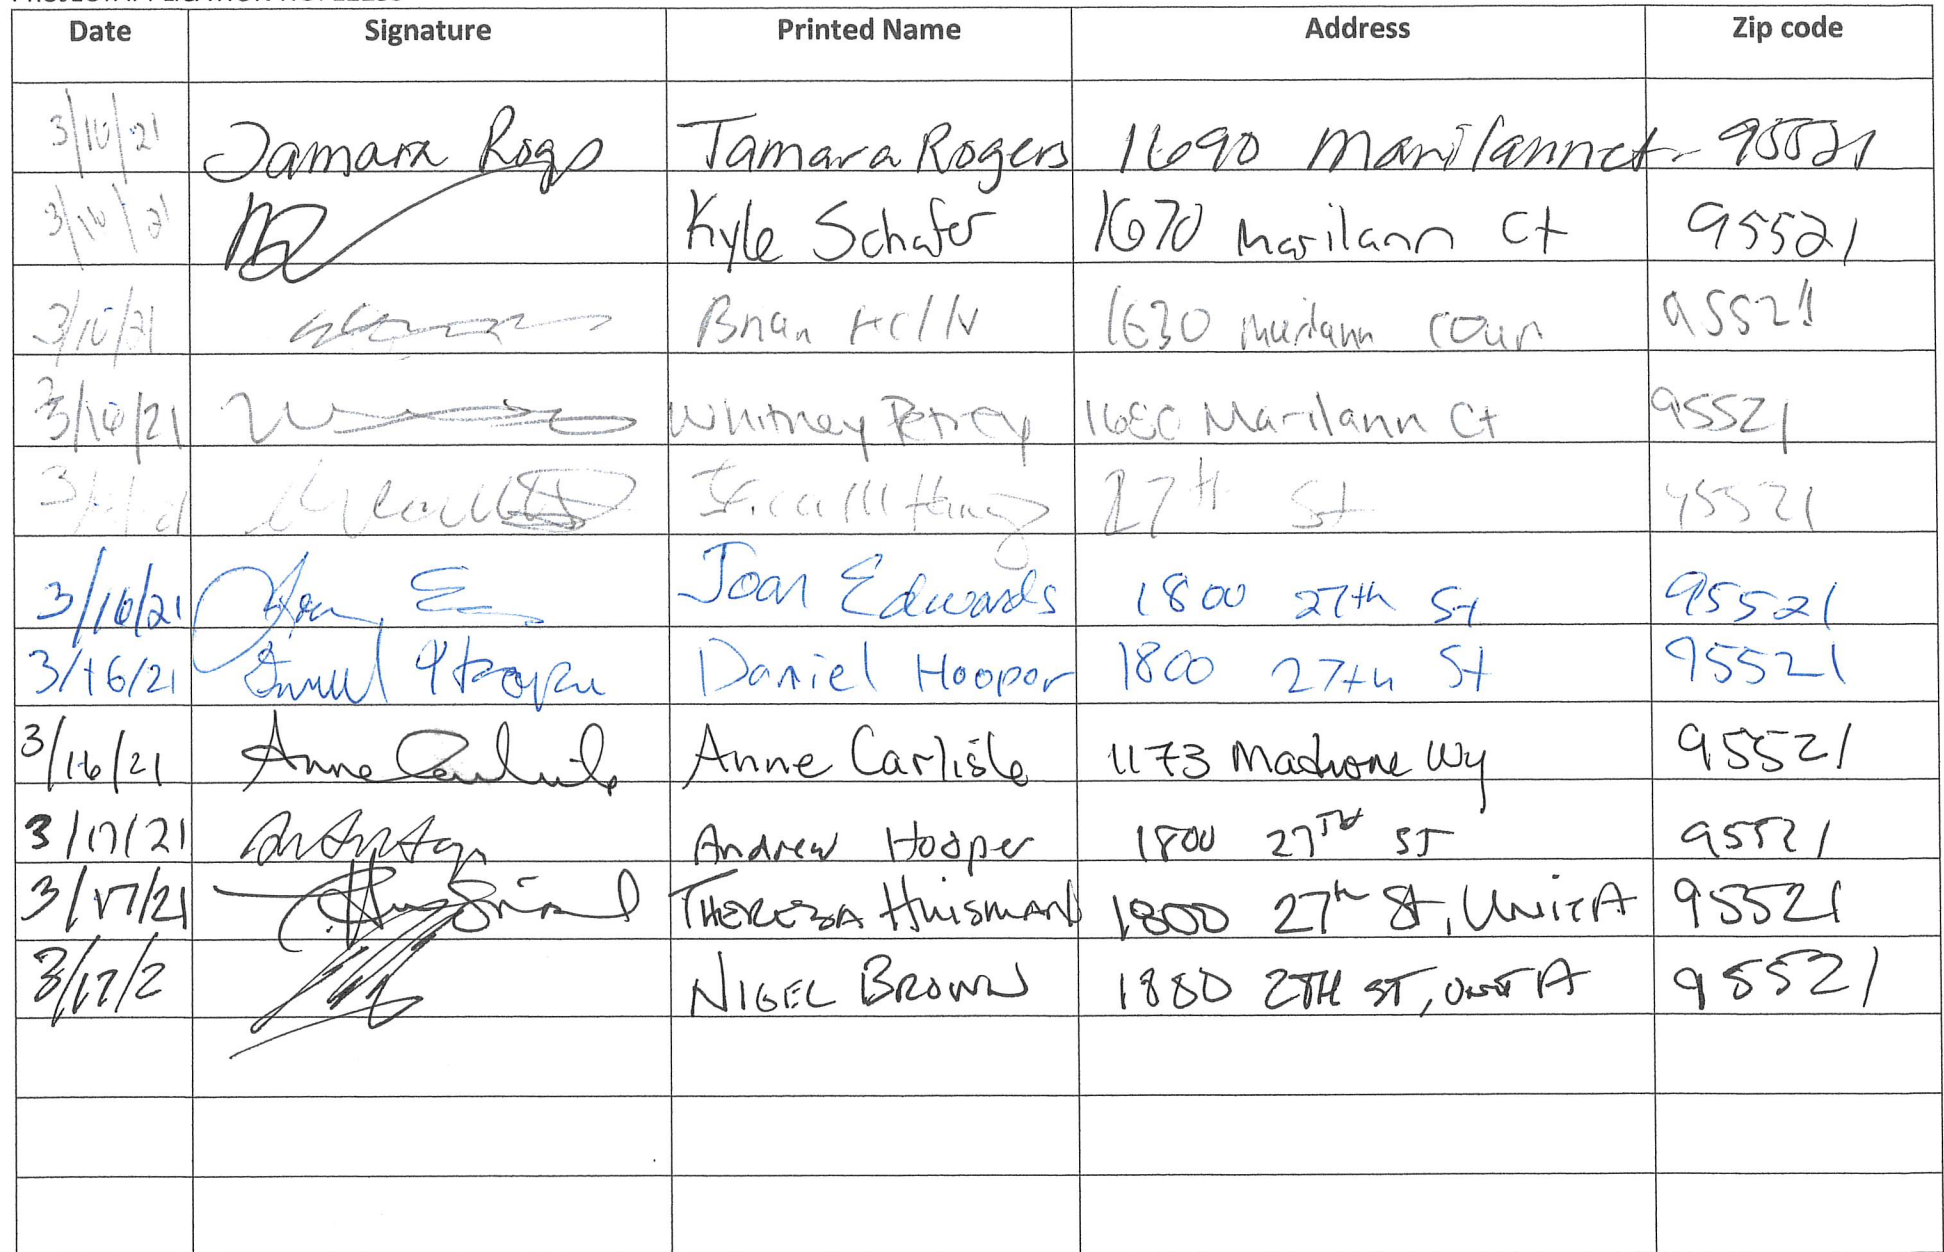 Date Signature Printed Name Address Zip code
3/16/21 Tamara Rogs Tamara Rogers 1690 Marilann ct 95521
3/16/21 Kyle Schafer 1670 Marilann Ct 95521
3/16/21 Brian 1630 Marilann Cour 95521
3/16/21 Whitney Petrey 1680 Marilann Ct 95521
27th St 95521
3/16/21 Joan Edwards 1800 27th St 95521
3/16/21 Daniel Hooper 1800 27th St 95521
3/16/21 Anne Carlisle Anne Carlisle 1173 Madrone Wy 95521
3/17/21 Andrew Hooper 1800 27TH ST 95521
3/17/21 THERESA HUISMAN 1800 27th St, UNIT A 95521
3/17/2 NIGEL BROWN 1880 27TH ST, UNIT A 95521